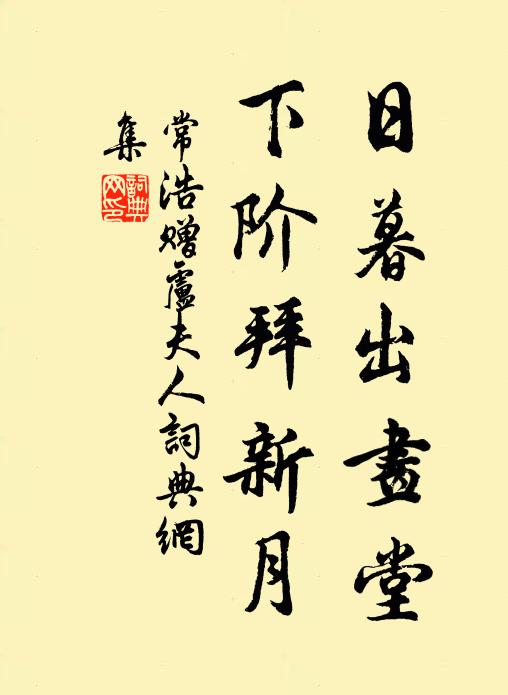 日暮出畫堂
下阶拜新月
常浩赠盧夫人詞典網
集
詞典
网印